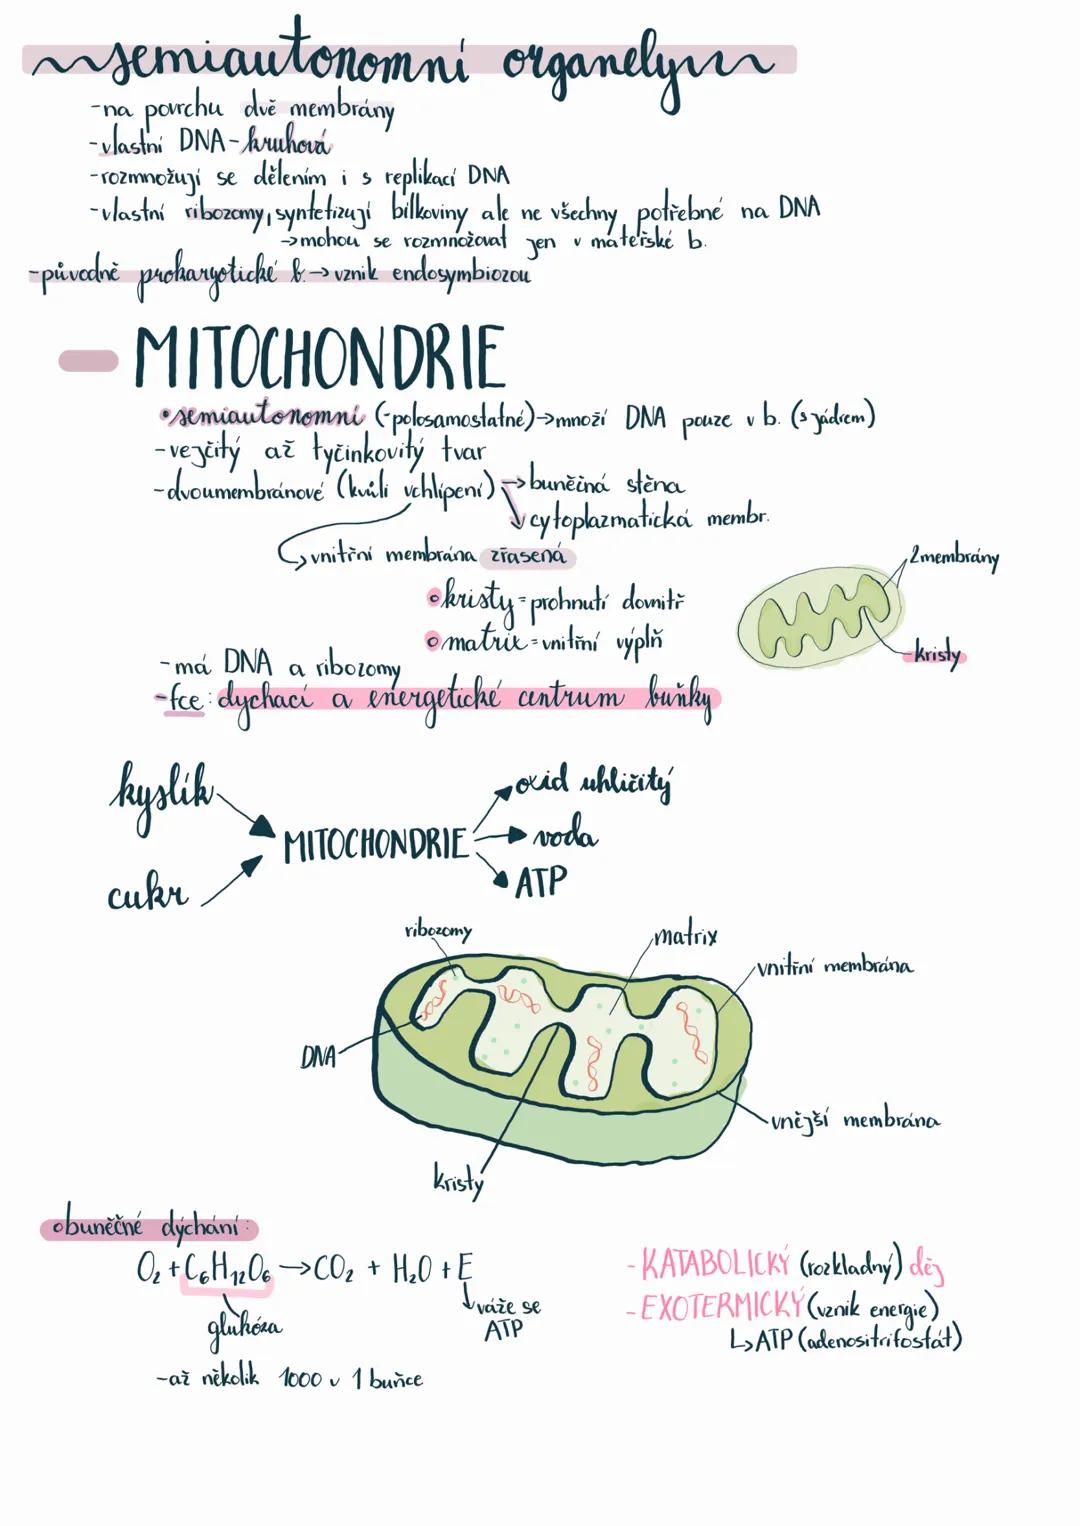 semiautonomní organely
-na povrchu dvě membrány
-vlastní DNA-kruhová
-rozmnožují se dělením i s replikací DNA
-vlastní ribozomy, syntetizují bílkoviny ale ne všechny potřebné na DNA
→mohou se rozmnožovat jen v mateřské b.
-původně prokaryotické b.→vznik endosymbiozou
MITOCHONDRIE
•semiautonomní (-polosamostatné)→množí DNA pouze v b. (s jádrem)
-vejčitý až tyčinkovitý tvar
-dvoumembránové (kvůli vchlípení)→buněčná stěna
↓cytoplazmatická membr.
→vnitřní membrána zřasená
2membrány
•kristy=prohnutí dovnitř
•matrix=vnitřní výplň
kristy
-má DNA a ribozomy
-fce: dychací a energetické centrum buňky
kyslík
oxid uhličitý
MITOCHONDRIE
voda
cukr
ATP
ribozomy
matrix
vnitřní membrána
DNA
vnější membrána
kristy
•buněčné dýchání:
O₂+C₆H₁₂O₆→CO₂ + H₂O + E
-KATABOLICKÝ (rozkladný) děj
↓váže se
ATP
-EXOTERMICKÝ (vznik energie)
glukóza
↳ATP (adenositrifosfát)
-až několik 1000 v 1 buňce